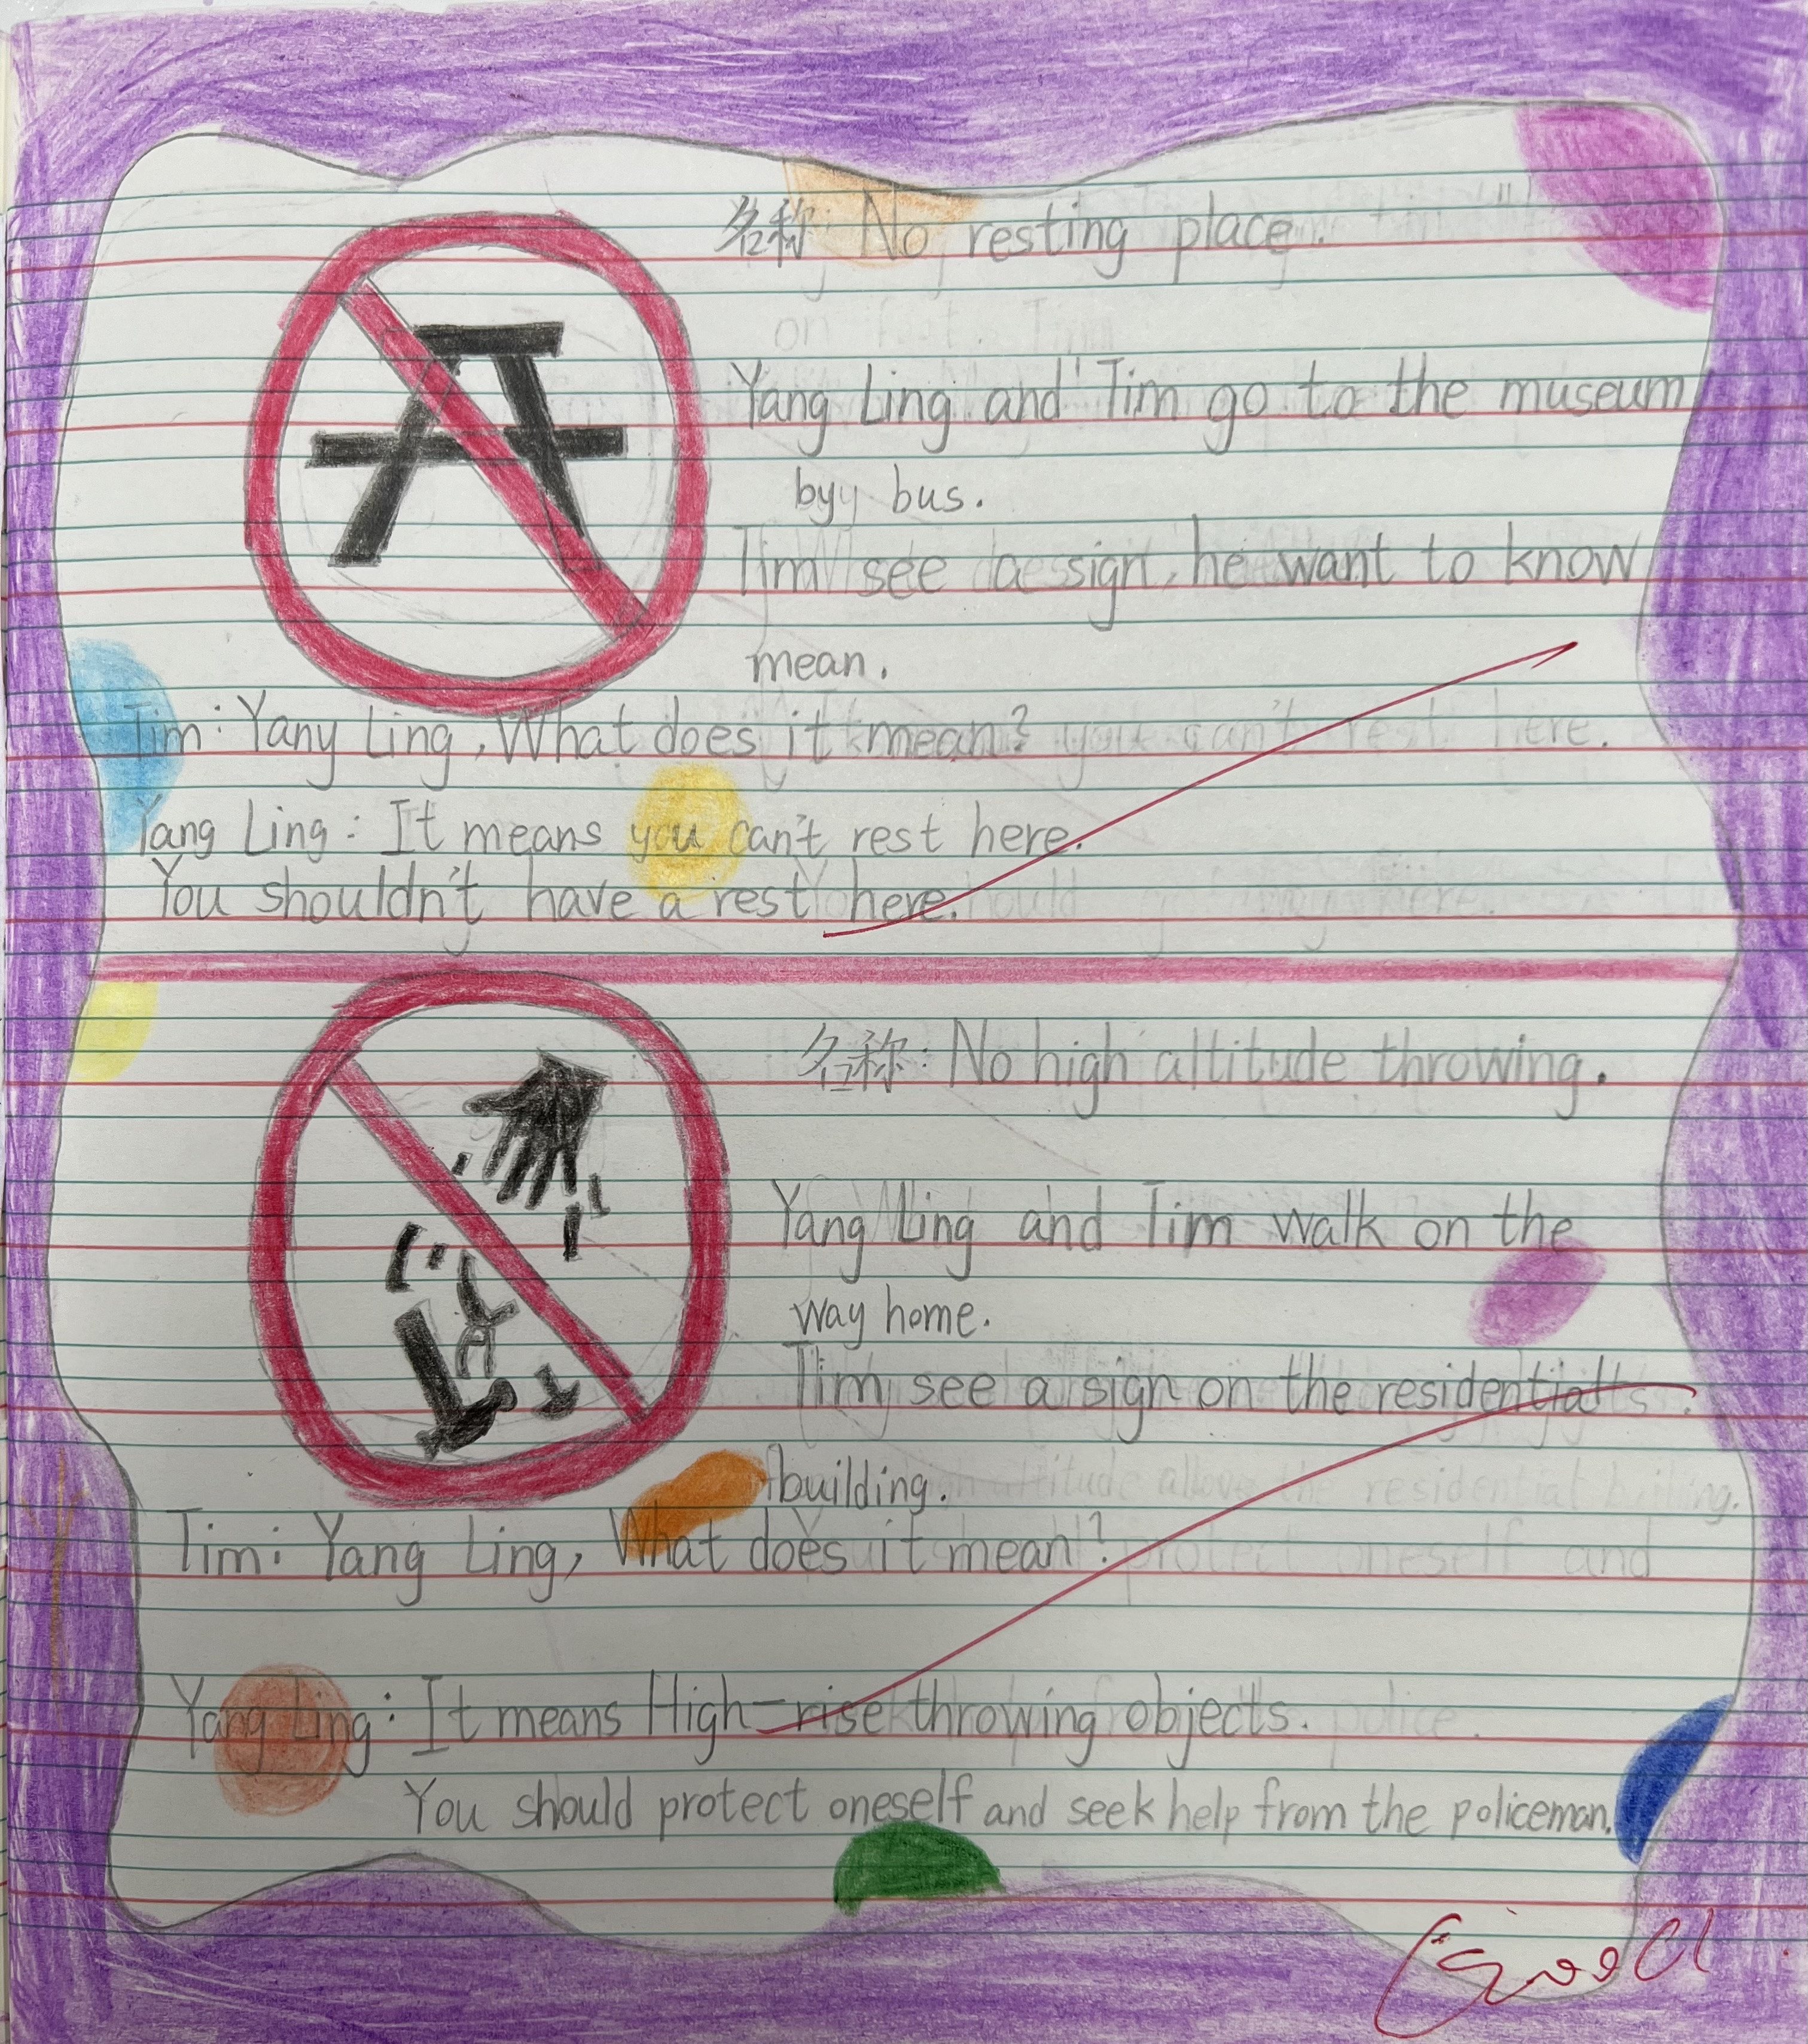 名称: No resting place.
Yang Ling and Tim go to the museum
by bus.
Tim see a sign, he want to know
mean.
Tim: Yany Ling, What does it mean?
Yang Ling: It means you can't rest here.
You shouldn't have a rest here.
名称: No high altitude throwing.
Yang Ling and Tim walk on the
way home.
Tim see a sign on the residential
building.
Tim: Yang Ling, What does it mean?
Yang Ling: It means High-rise throwing objects.
You should protect oneself and seek help from the policeman.
Good